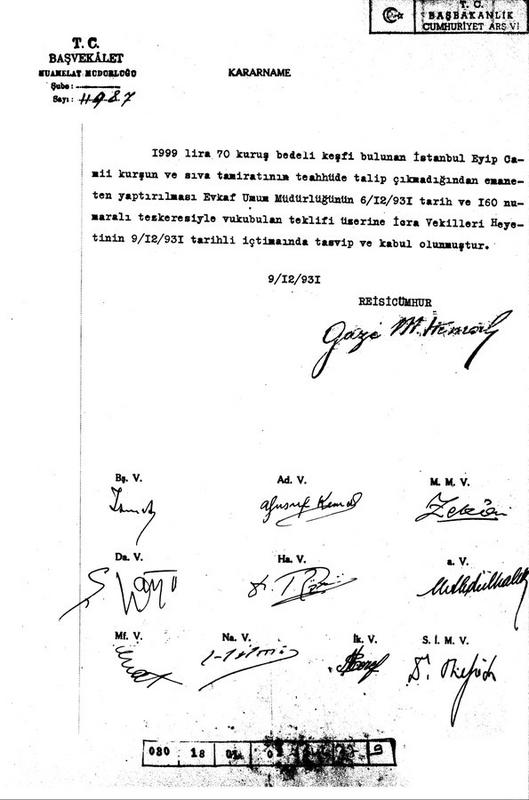 T. C.
BAŞBAKANLIK
CUMHURİYET ARŞİVİ
T. C.
BAŞVEKÂLET
MUAMELAT MÜDÜRLÜĞÜ
Şube:
Sayı: 11987
KARARNAME
1999 lira 70 kuruş bedeli keşfi bulunan İstanbul Eyip Ca-
mii kurşun ve sıva tamiratının teahhüde talip çıkmadığından emane-
ten yaptırılması Evkaf Umum Müdürlüğünün 6/12/931 tarih ve 160 nu-
maralı teskeresiyle vukubulan teklifi üzerine İcra Vekilleri Heye-
tinin 9/12/931 tarihli içtimaında tasvip ve kabul olunmuştur.
9/12/931
REİSİCÜMHUR
Gazi M. Kemal
Bş. V.
Ad. V.
M. M. V.
İsmet
Yusuf Kemal
Zekâi
Da. V.
Ha. V.
a. V.
Ş. Kaya
Dr. T. Rüştü
M. Abdülhalik
Mf. V.
Na. V.
İk. V.
S. İ. M. V.
Esat
Hilmi
Dr. Refik
030 18 01